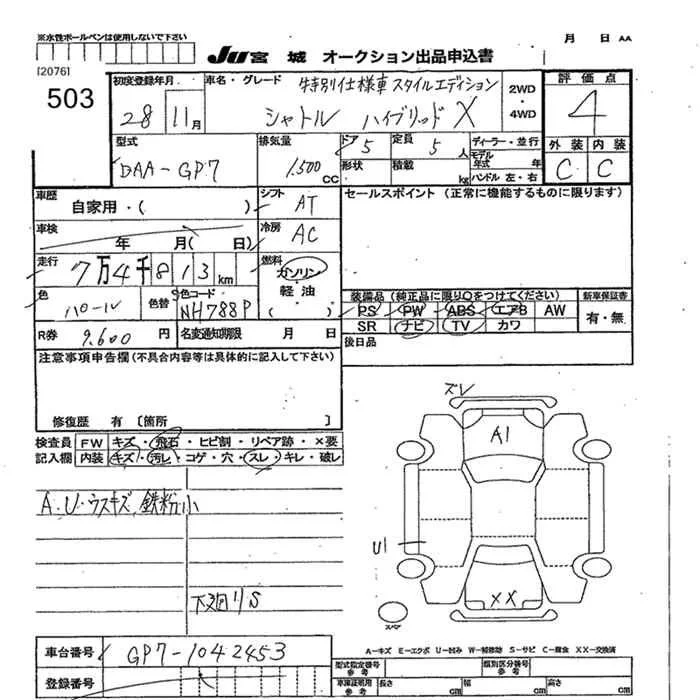 ※水性ボールペンは使用しないで下さい
月 日 AA
[2076]
JU 宮城 オークション出品申込書
503
初度登録年月 車名・グレード 特別仕様車 スタイルエディション 2WD ・ 4WD 評価点
28 11月 シャトル ハイブリッド X 4
型式 排気量 ドア 5 定員 5人 ディーラー・並行 外装 内装
DAA-GP7 1.500cc 形状 積載 kg モデル年式 年 C C
ハンドル 左・右
車歴 シフト セールスポイント (正常に機能するものに限ります)
自家用・( ) AT
車検 冷房
年 月( 日) AC
走行 燃料
7万4千813km ガソリン
軽油
( )
色 色替 色コード
パール NH788P
装備品 (純正品に限り○をつけてください) 新車保証書
PS PW ABS エアB AW 有・無
SR ナビ TV カワ
R券 9.600円 名変通知期限 月 日
後日品
注意事項申告欄 (不具合内容等は具体的に記入して下さい)
修復歴 有 [箇所 ]
検査員 FW キズ・飛石・ヒビ割・リペア跡・×要
記入欄 内装 キズ・汚レ・コゲ・穴・スレ・キレ・破レ
A.U.ウスキズ、鉄粉小
下廻りS
ズレ
A1
U1
XX
スペア
車台番号 GP7-1042453
登録番号
A-キズ E-エクボ U-凹み W-補修跡 S-サビ C-腐食 XX-交換済
型式指定番号 参考 類別区分番号 参考
車庫証明用 参考 長さ cm 幅 cm 高さ cm